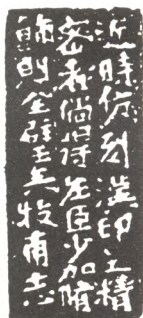 近時仿刻漢印之精
密者倘得臣少加脩
飾則全璧矣牧甫志